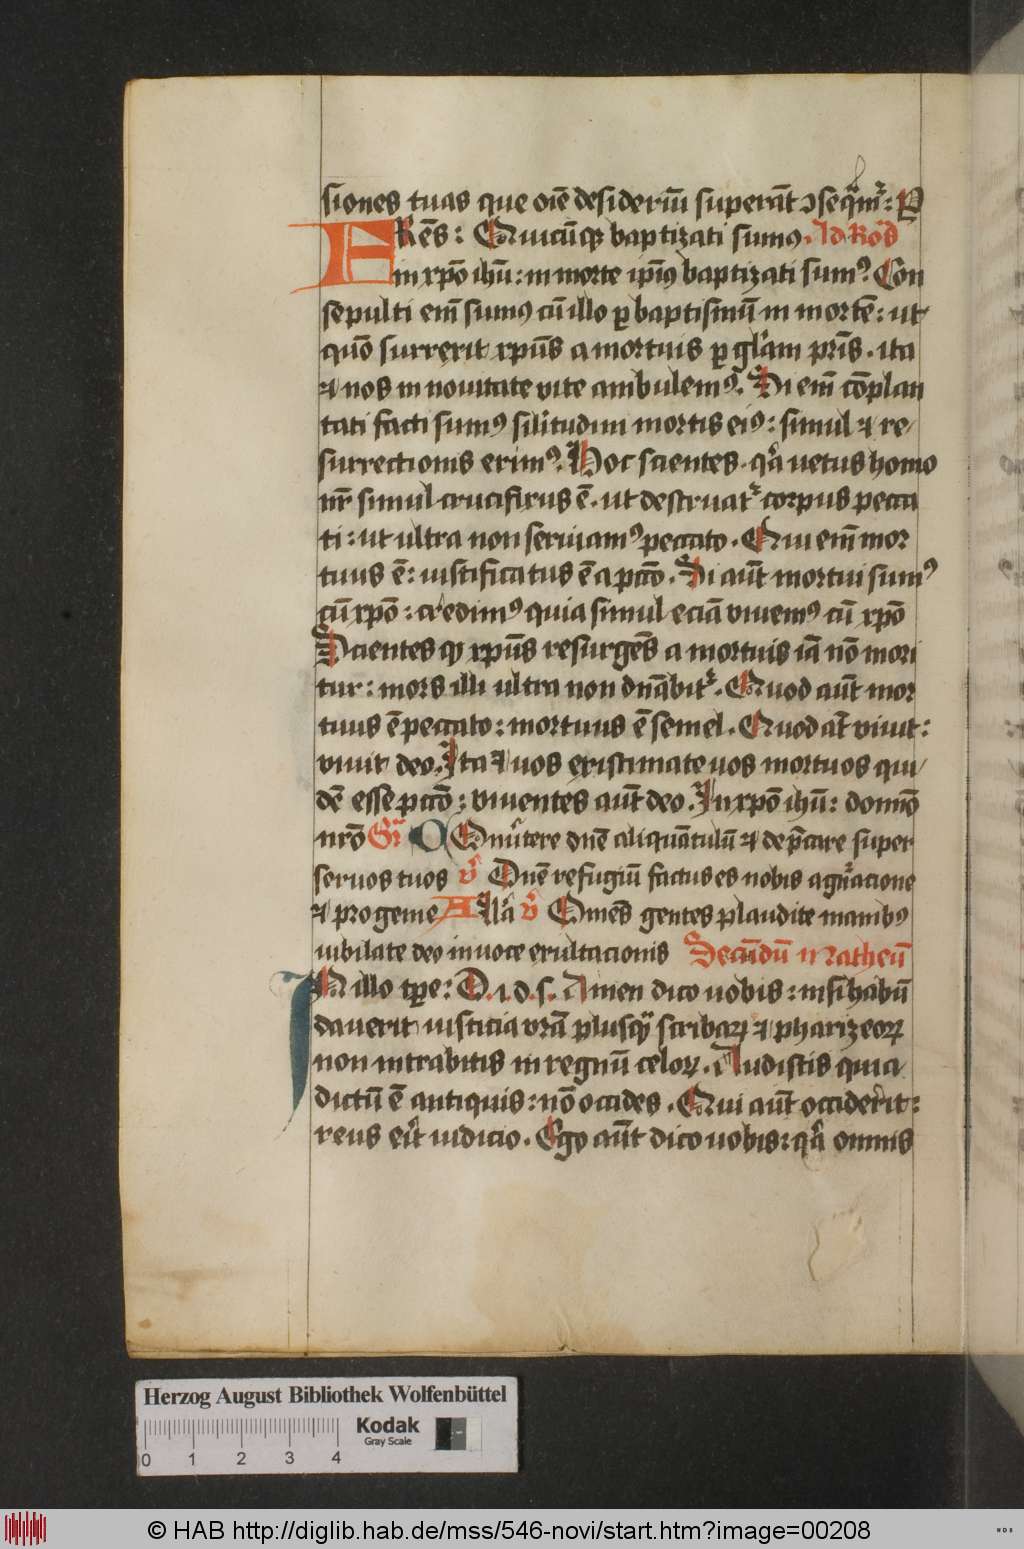 siones tuas que oīe desideriū superāt ꝯseqͣmͬ: ꝑ
FRēs: Quicūqꝫ baptizati sumꝯ Ad Roͣ
in xp̄o ihū: in morte ip̄iꝯ baptizati sumꝯ Con
sepulti em̄ sumꝯ cū illo ꝑ baptismū in mortē: ut
quō surrexit xp̄us a mortuis ꝑ glͥam pr̄is. ita
⁊ nos in nouitate vite ambulemꝯ. Si em̄ cōplan
tati facti sumꝯ silͥitudini mortis eiꝯ: simul ⁊ re
surrectionis erimꝯ. Hoc scientes. qͣ uetus homo
nr̄ simul crucifixus ē. ut destruatͬ corpus pecca
ti: ut ultra non seruiamꝯ peccato. Qui em̄ mor
tuus ē: iustificatus ē a pctō. Si aūt mortui sumꝯ
cū xp̄o: credimꝯ quia simul eciā viuemꝯ cū xp̄o
Scientes ꝙ xp̄us resurgēs a mortuis iā nō mori
tur: mors illi ultra non dn̄abitͬ. Quod aūt mor
tuus ē peccato: mortuus ē semel. Quod at̄ viuit:
viuit deo. Ita ⁊ uos existimate uos mortuos qui
dē esse pctō: viuentes aūt deo. In xp̄o ihū: domīo
nr̄o Gͬ COnuͬtere dn̄e aliquātulū ⁊ dep̄care super
seruos tuos v̄ Dn̄e refugiū factus es nobis a gnͬacione
⁊ progenie Allā v̄ Omēs gentes plaudite manibꝯ
iubilate deo in uoce exultacionis Secūdū Matheū
IN illo tꝑe: D. i. d. s. Amen dico uobis: nisi habū
dauerit iusticia vr̄a plusqͣ scribaꝝ ⁊ pharizeoꝝ
non intrabitis in regnū celoꝝ. Audistis quia
dictū ē antiquis: nō occides. Qui aūt occiderit:
reus eͥt iudicio. Ego aūt dico uobis: qͣ omnis
Herzog August Bibliothek Wolfenbüttel
0 1 2 3 4 Kodak
Gray Scale
© HAB http://diglib.hab.de/mss/546-novi/start.htm?image=00208